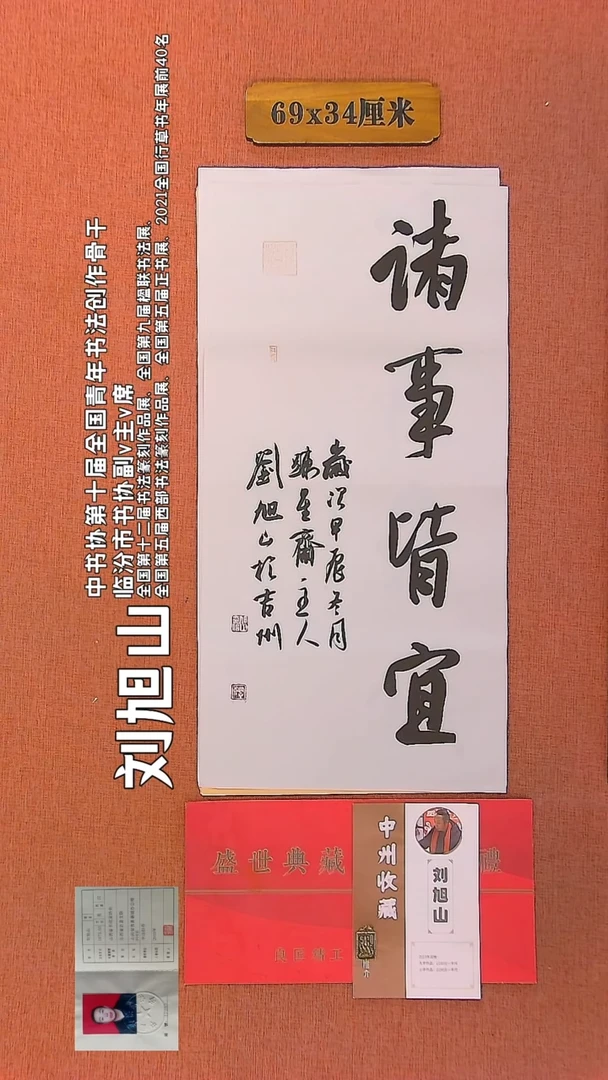 69x34厘米
諸事皆宜
歲次甲辰冬月
齋主人
劉旭山於吉州
刘旭山
中书协第十届全国青年书法创作骨干
临汾市书协副v主v席
全国第十二届书法篆刻作品展、全国第九届楹联书法展、
全国第五届西部书法篆刻作品展、全国第五届正书展、2021全国行草书年展前40名
盛世典藏
禮
中州收藏
刘旭山